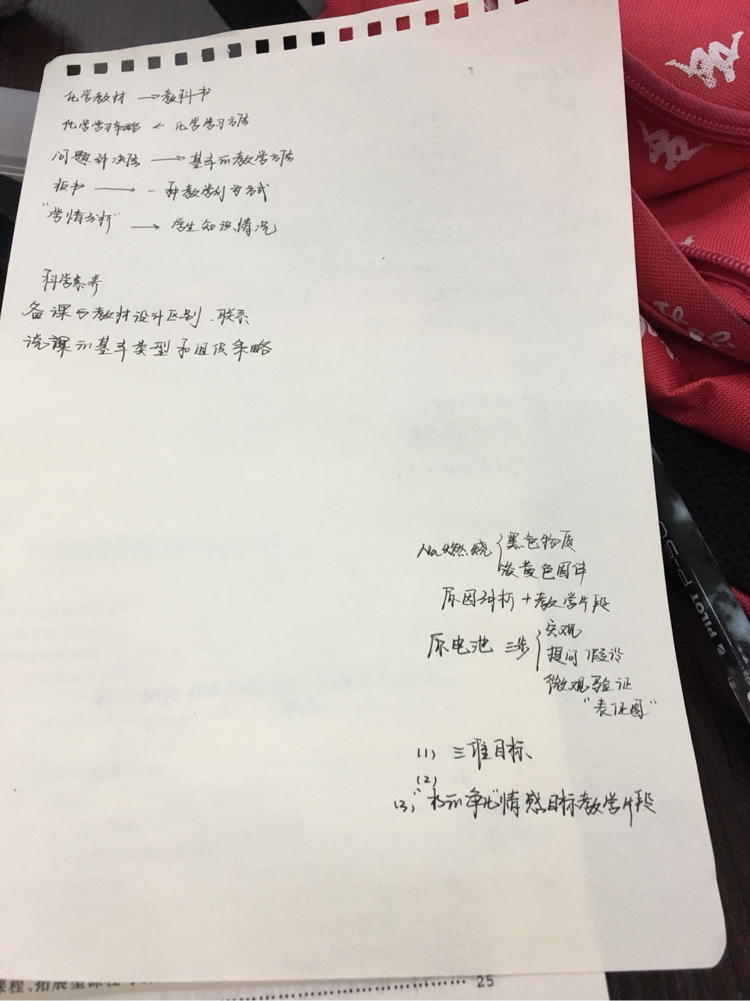 化学教材 → 教科书
化学学习策略 ← 化学学习方法
问题解决法 → 基本的教学方法
板书 → 一种教学行为方式
"学情分析" → 学生知识情况
科学素养
备课与教材设计区别、联系
说课的基本类型和组织策略
Na燃烧 { 黑色物质
淡黄色固体
原因剖析 + 教学片段
原电池 三步 { 宏观
提问 假设
微观验证
"表征图"
(1) 三维目标
(2)
(3) "水的净化"情感目标教学片段
PILOT
课程、拓展型课程
25